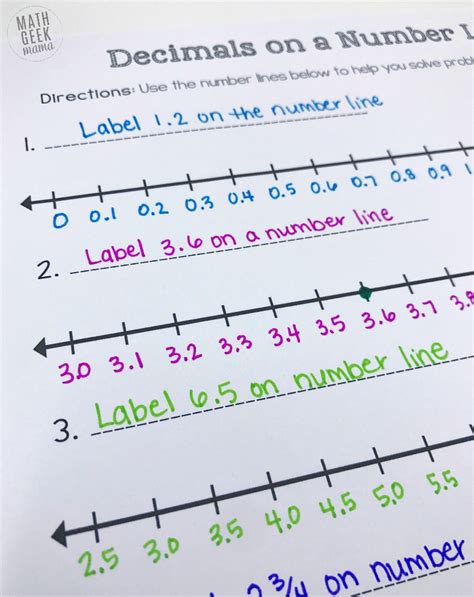 MATH
GEEK
mama
Decimals on a Number
Directions: Use the number lines below to help you solve
1. Label 1.2 on the number line
0 0.1 0.2 0.3 0.4 0.5 0.6 0.7 0.8 0.9 1.
2. Label 3.6 on a number line
3.0 3.1 3.2 3.3 3.4 3.5 3.6 3.7 3.8
3. Label 6.5 on number line
2.5 3.0 3.5 4.0 4.5 5.0 5.5
2 3/4 on number